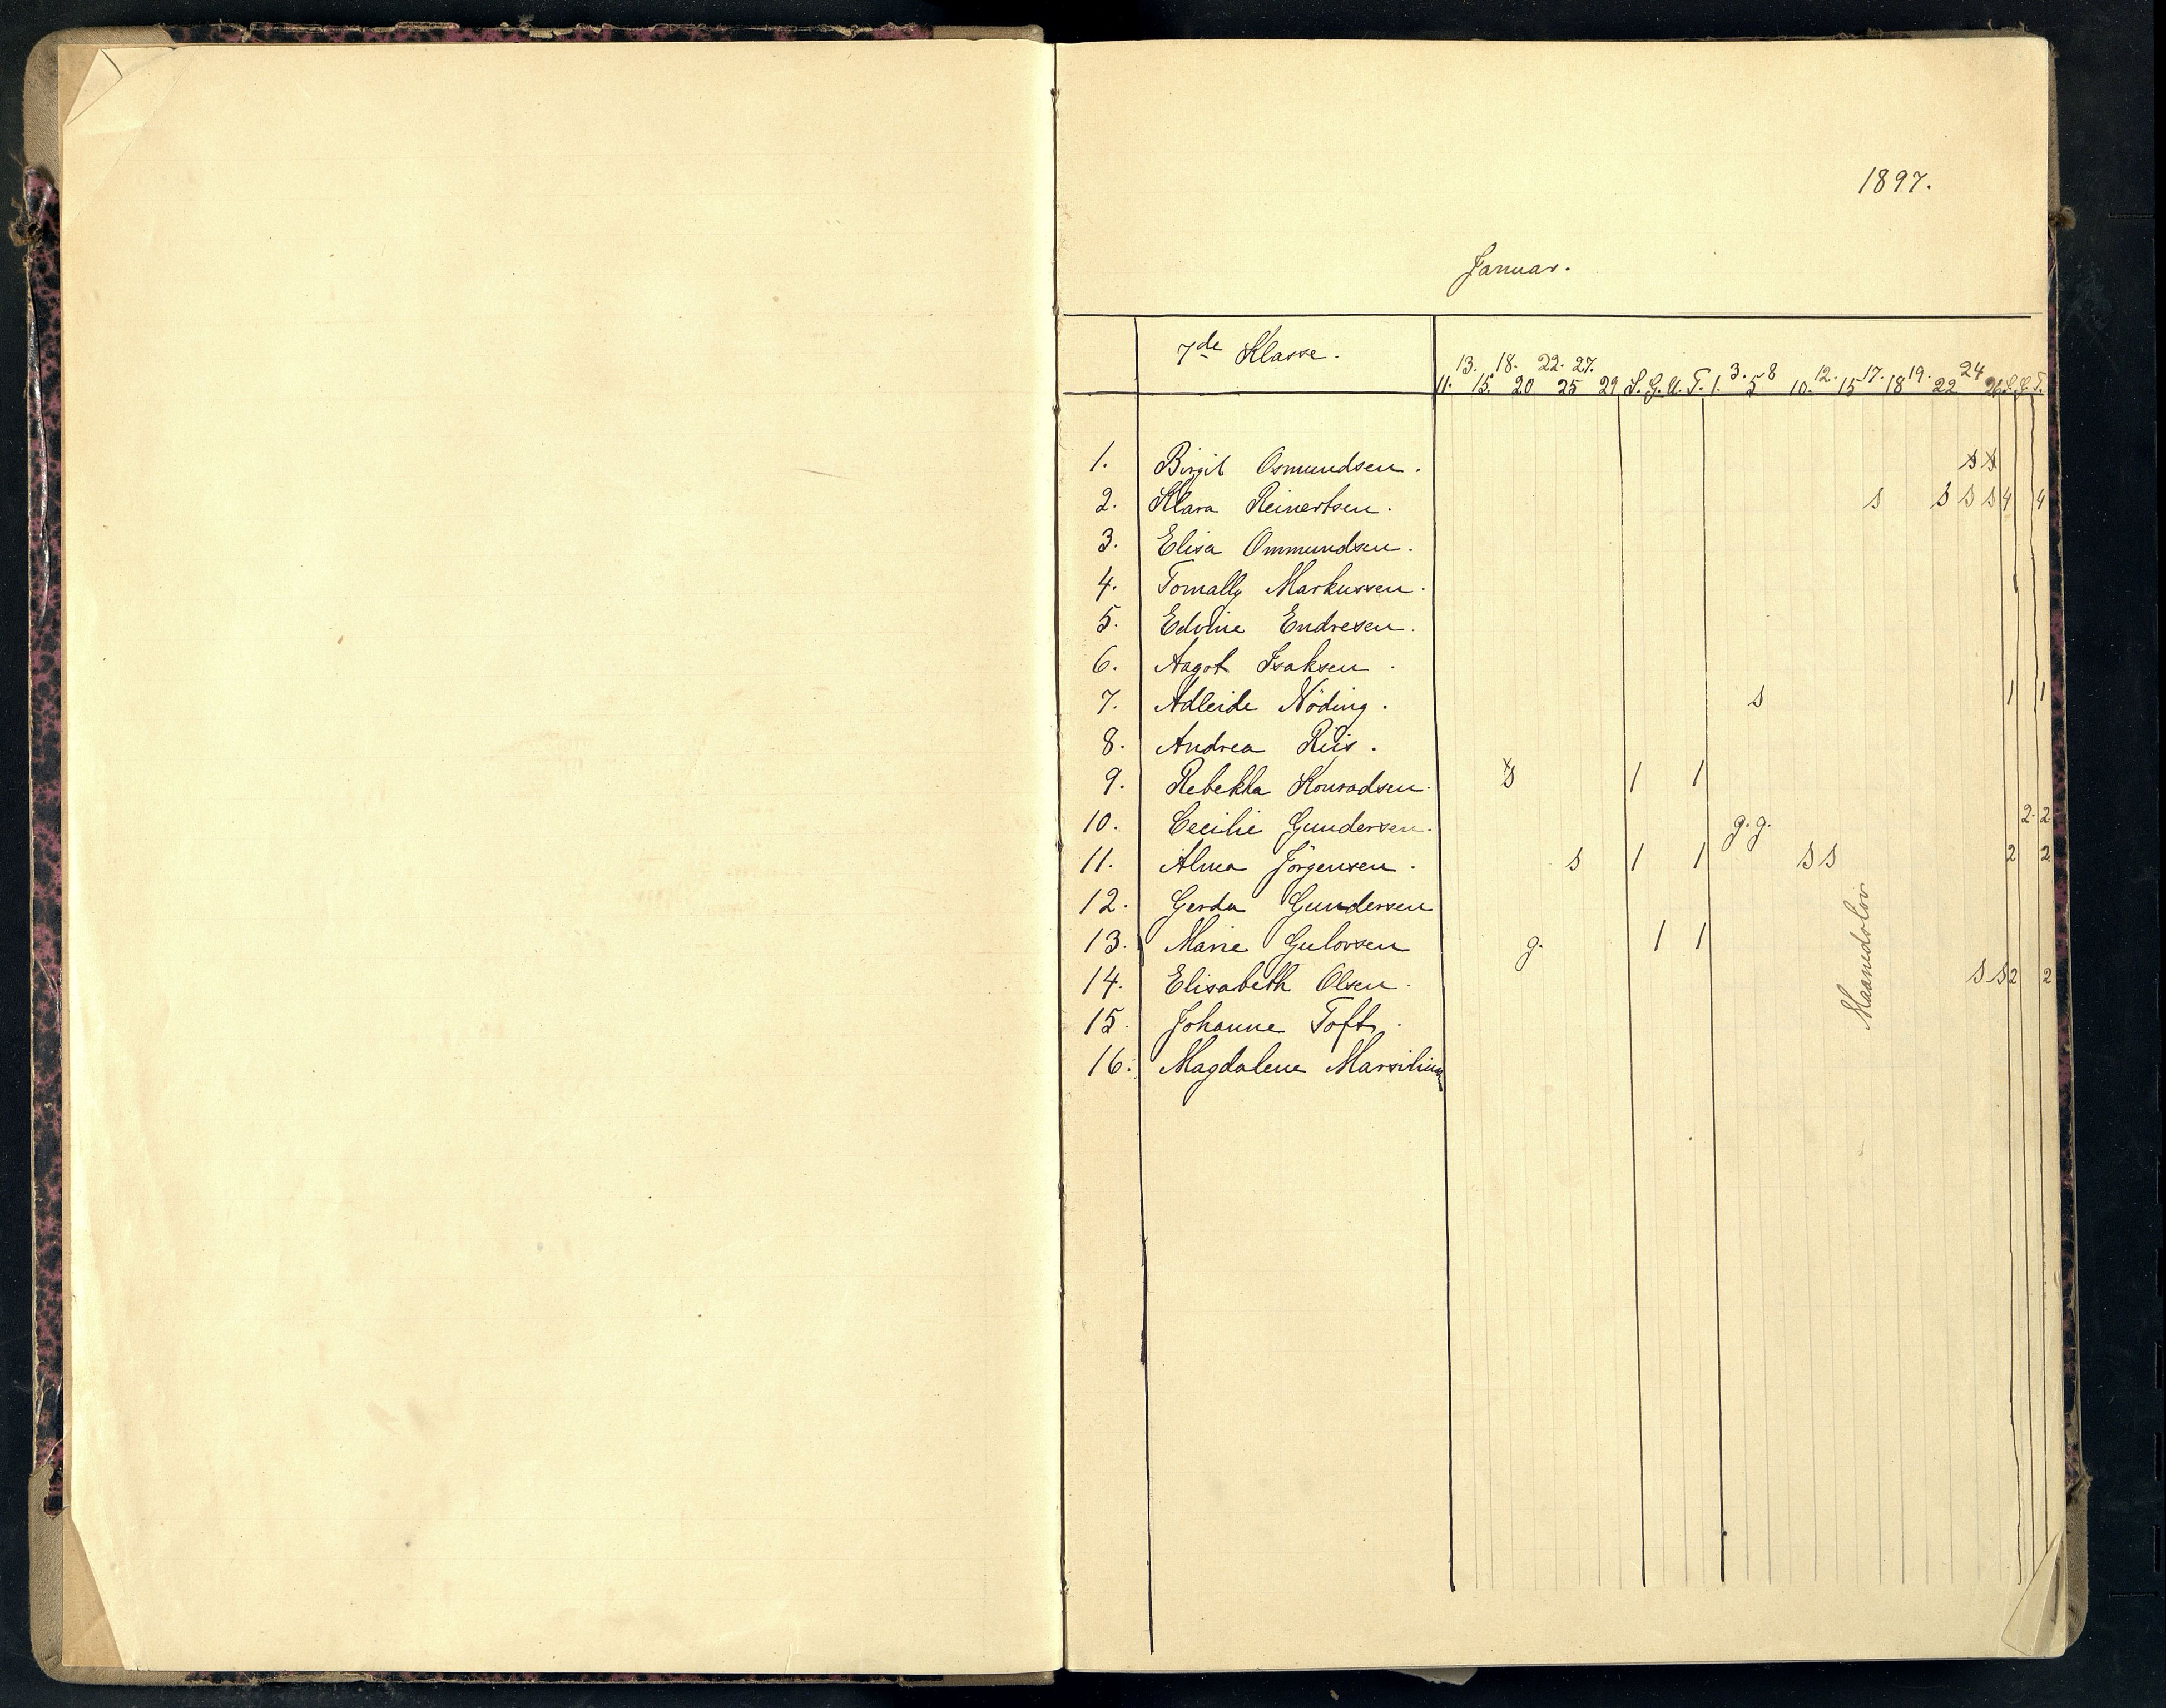 1897.
Januar.
7de Klasse.
13. 18. 22. 27. 3. 8 12. 17. 19. 24
11. 15. 20 25 29 S. G. U. T. 1. 5 10. 15 18 22 26 S. G. T.
1. Birgit Osmundsen. s s
2. Klara Reinertsen. s s s s 4 4
3. Elisa Ommundsen.
4. Tomally Markussen.
5. Edvine Endresen.
6. Aagot Isaksen.
7. Adleide Nöding. s 1 1
8. Andrea Riis.
9. Rebekka Konradsen. s 1 1
10. Cecilie Gundersen. g. g. 2. 2
11. Alma Jörgensen. s 1 1 s s 2 2
12. Gerda Gundersen
13. Marie Gulovsen g. 1 1
14. Elisabeth Olsen. s s 2 2
15. Johanne Toft.
16. Magdalene Marsilius
Maanedslov